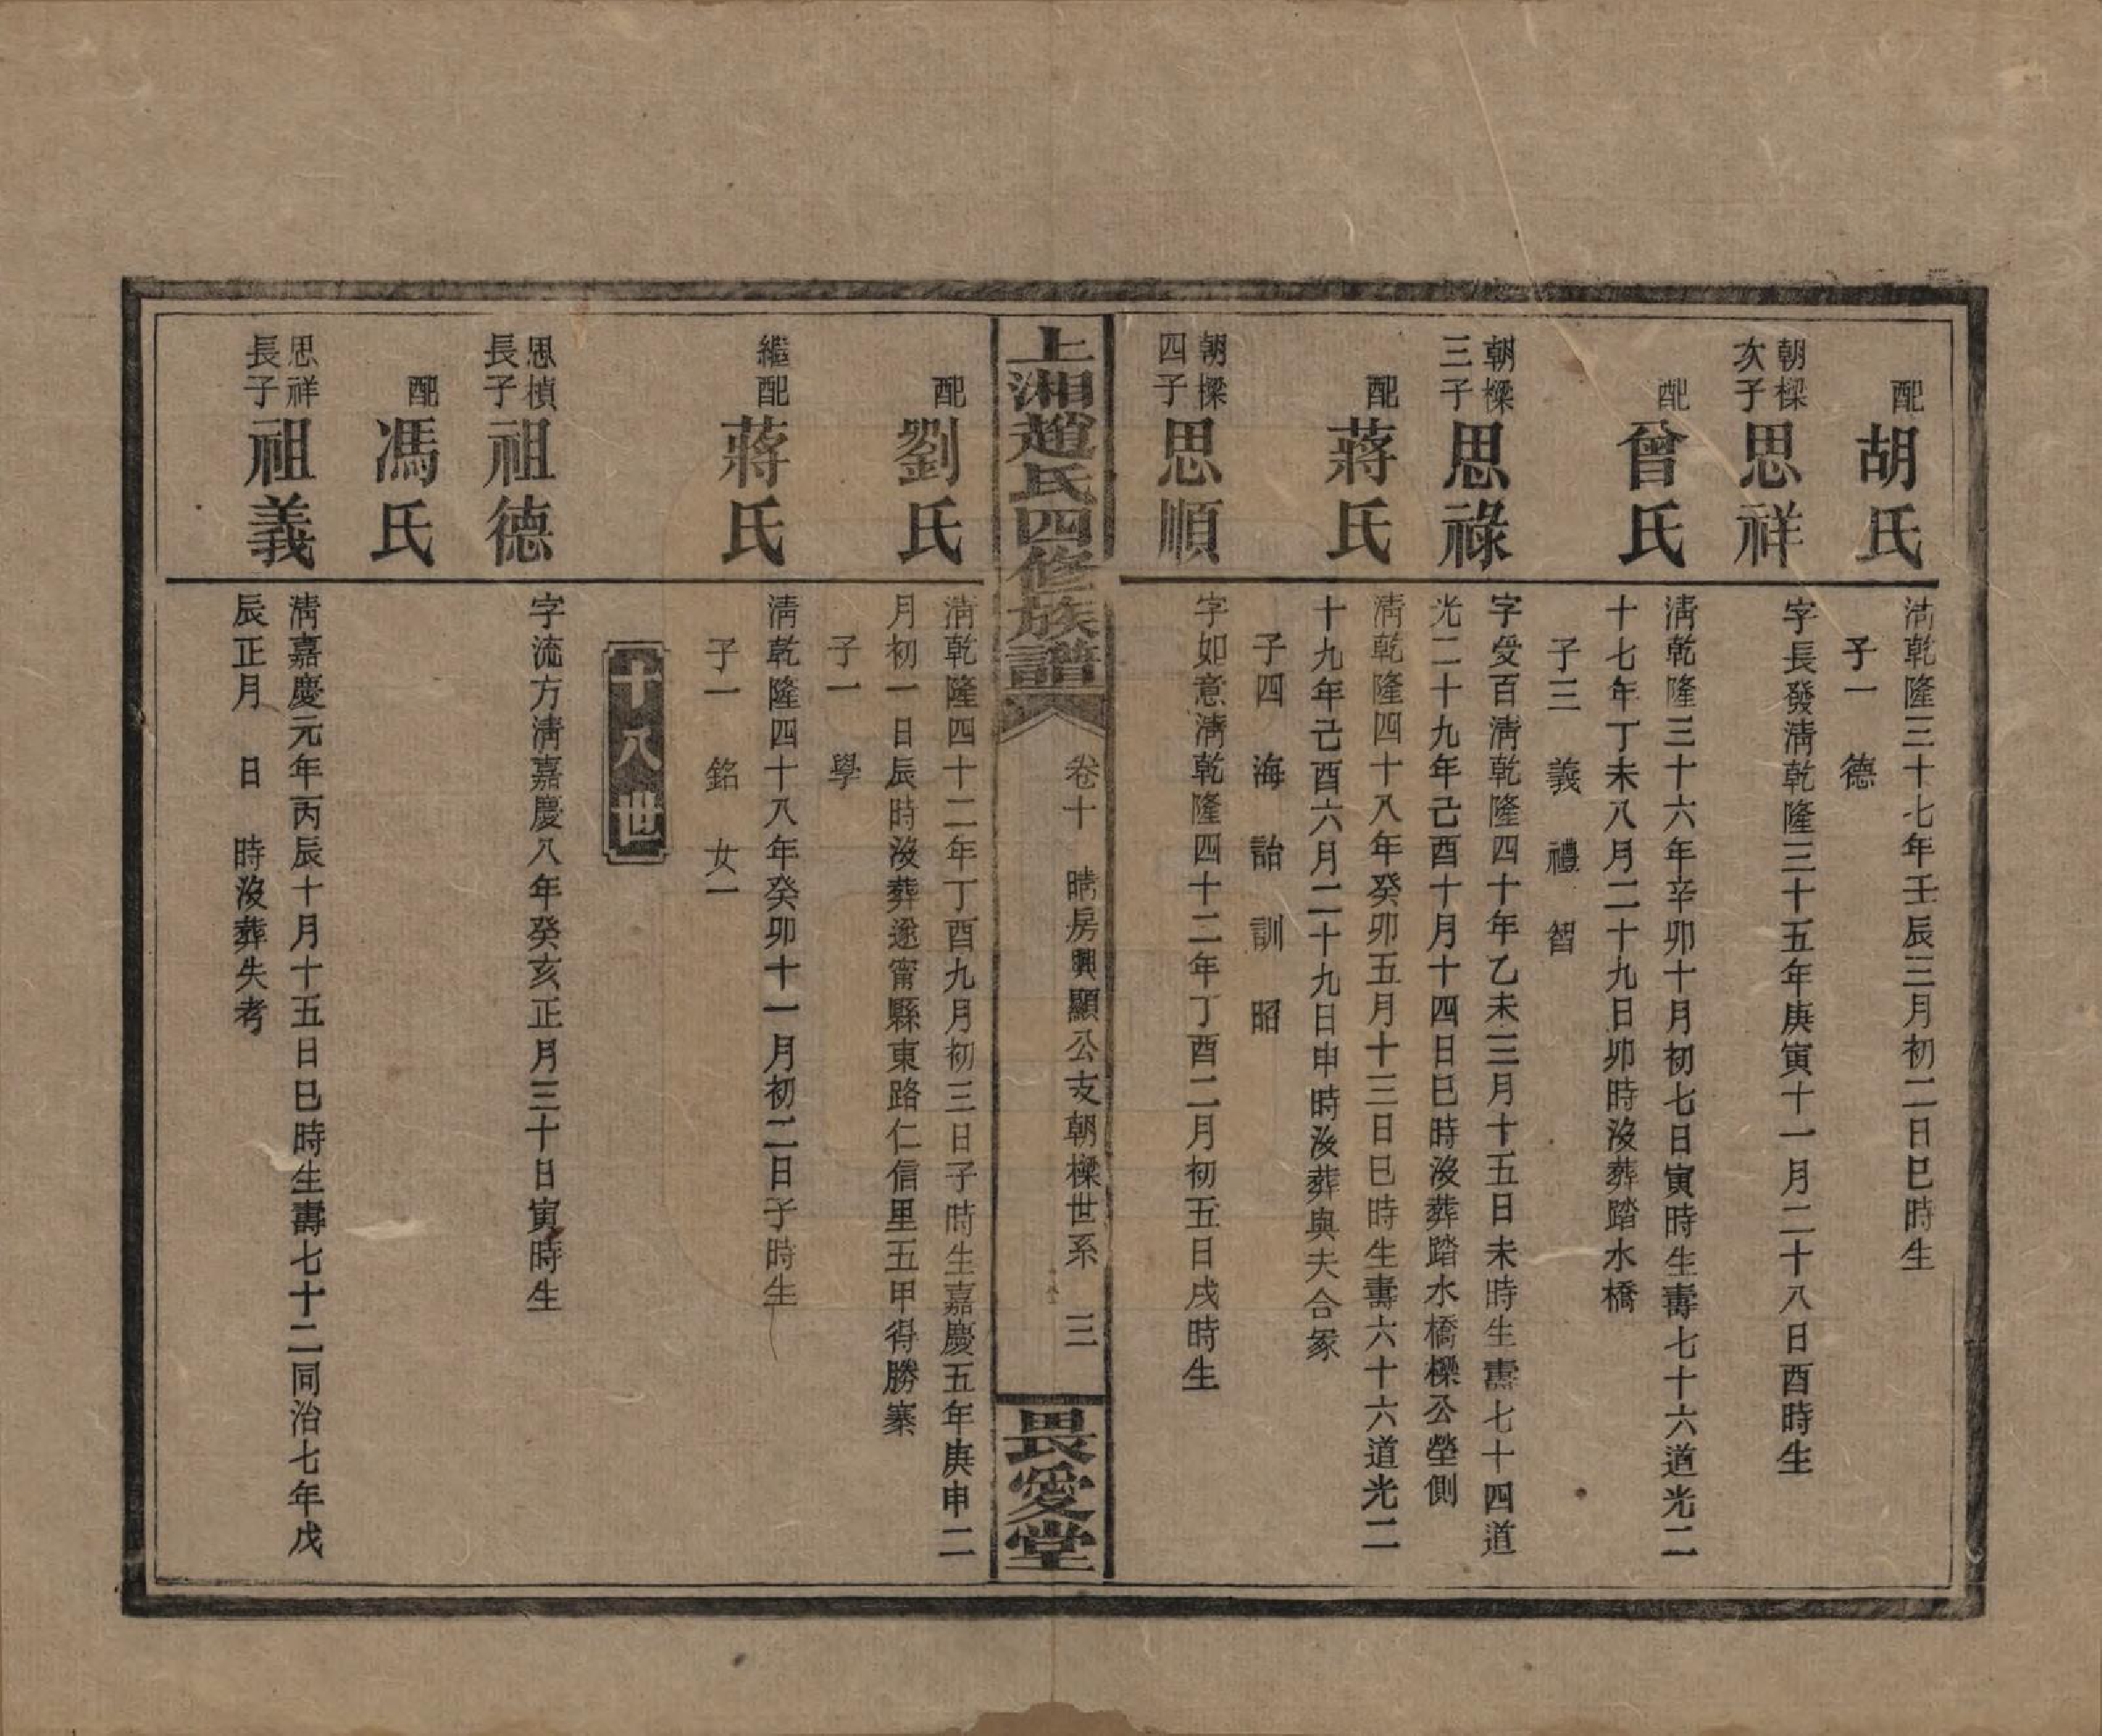 配
胡氏
清乾隆三十七年壬辰三月初二日巳時生
子一　德
朝樑
次子
思祥
字長發清乾隆三十五年庚寅十一月二十八日酉時生
配
曾氏
清乾隆三十六年辛卯十月初七日寅時生壽七十六道光二
十七年丁未八月二十九日卯時沒葬踏水橋
子三　義　禮　智
朝樑
三子
思祿
字受百清乾隆四十年乙未三月十五日未時生壽七十四道
光二十九年己酉十月十四日巳時沒葬踏水橋樑公塋側
配
蔣氏
清乾隆四十八年癸卯五月十三日巳時生壽六十六道光二
十九年己酉六月二十九日申時沒葬與夫合冢
子四　海　詒　訓　昭
朝樑
四子
思順
字如意清乾隆四十二年丁酉二月初五日戌時生
上湘趙氏四修族譜
卷十　晴房興顯公支朝樑世系　三
畏愛堂
配
劉氏
清乾隆四十二年丁酉九月初三日子時生嘉慶五年庚申二
月初一日辰時沒葬遂甯縣東路仁信里五甲得勝寨
子一　學
繼配
蔣氏
清乾隆四十八年癸卯十一月初二日子時生
子一　銘　女一
十八世
思楨
長子
祖德
字流方清嘉慶八年癸亥正月三十日寅時生
配
馮氏
思祥
長子
祖義
清嘉慶元年丙辰十月十五日巳時生壽七十二同治七年戊
辰正月　日　時沒葬失考